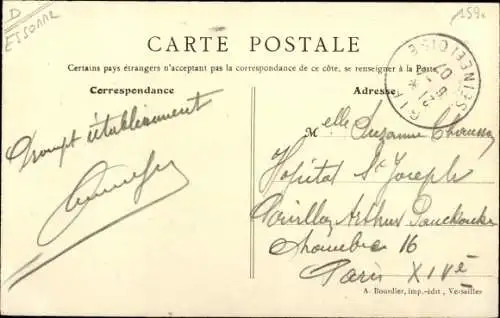 D
ESSONNE
159.
CARTE POSTALE
Certains pays étrangers n'acceptant pas la correspondance de ce côte, se renseigner à la Poste.
Correspondance
Adresse
Prompt établissement
Melle Suzanne
Hôpital St Joseph
Pavillon Arthur Panckoucke
chambre 16
Paris XIVè
A. Bourdier, imp.-édit, Versailles